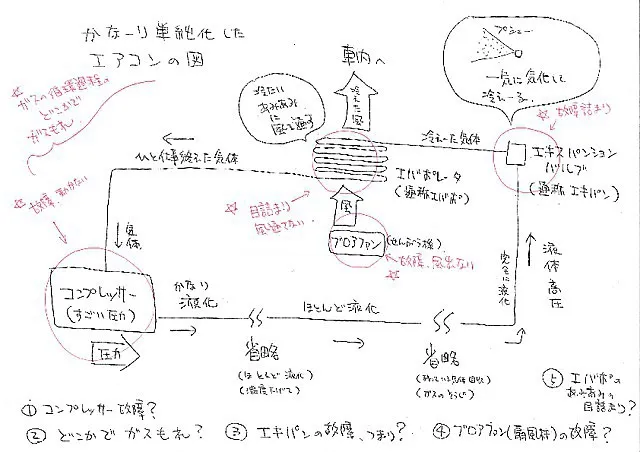 かなーり単純化した
エアコンの図
ガスの循環過程の
どこかで
ガスもれ。
車内へ
冷えた風
冷たい
あみあみ
に
風を通す
プシュー
一気に気化して
冷えーる。
故障詰まり
冷えた気体
エキスパンション
バルブ
(通称 エキパン)
ひと仕事終えた気体
エバポレータ
(通称エバポ)
目詰まり
風通でない
風
ブロアファン
(せんぷう機)
故障、風出ない
故障、動かない
気体
コンプレッサー
(すごい圧力)
圧力
かなり
液化
ほとんど液化
完全に液化
液体高圧
省略
(ほとんど液化)
(温度下げて)
省略
(ガスのそうじ)
① コンプレッサー故障?
② どこかでガスもれ?
③ エキパンの故障、つまり?
④ ブロアファン(扇風機)の故障?
⑤ エバポの
あみあみの
目詰まり?